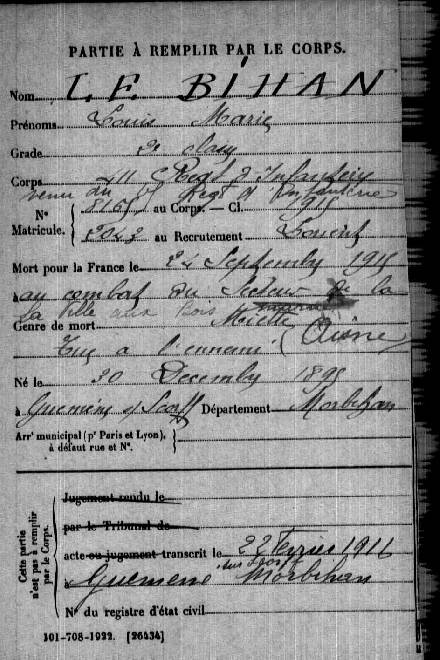 PARTIE À REMPLIR PAR LE CORPS.
Nom LE BIHAN
Prénoms Louis Marie
Grade 2e class
Corps Regt d'Infanterie
venu du Regt d'Infanterie
N° 8168 au Corps. — Cl. 1915
Matricule. 2043 au Recrutement Lorient
Mort pour la France le 24 Septembre 1915
à au combat du Secteur de la
la Ville aux Bois Miette (Aisne)
Genre de mort
Tué à l'ennemi
Né le 30 Décembre 1895
à Guémené s/ Scorff Département Morbihan
Arrt municipal (pr Paris et Lyon),
à défaut rue et N°.
Cette partie
n'est pas à remplir
par le Corps.
Jugement rendu le
par le Tribunal de
acte ou jugement transcrit le 22 Février 1916
à Guémené sur Scorff Morbihan
N° du registre d'état civil
101-708-1922. [26434]